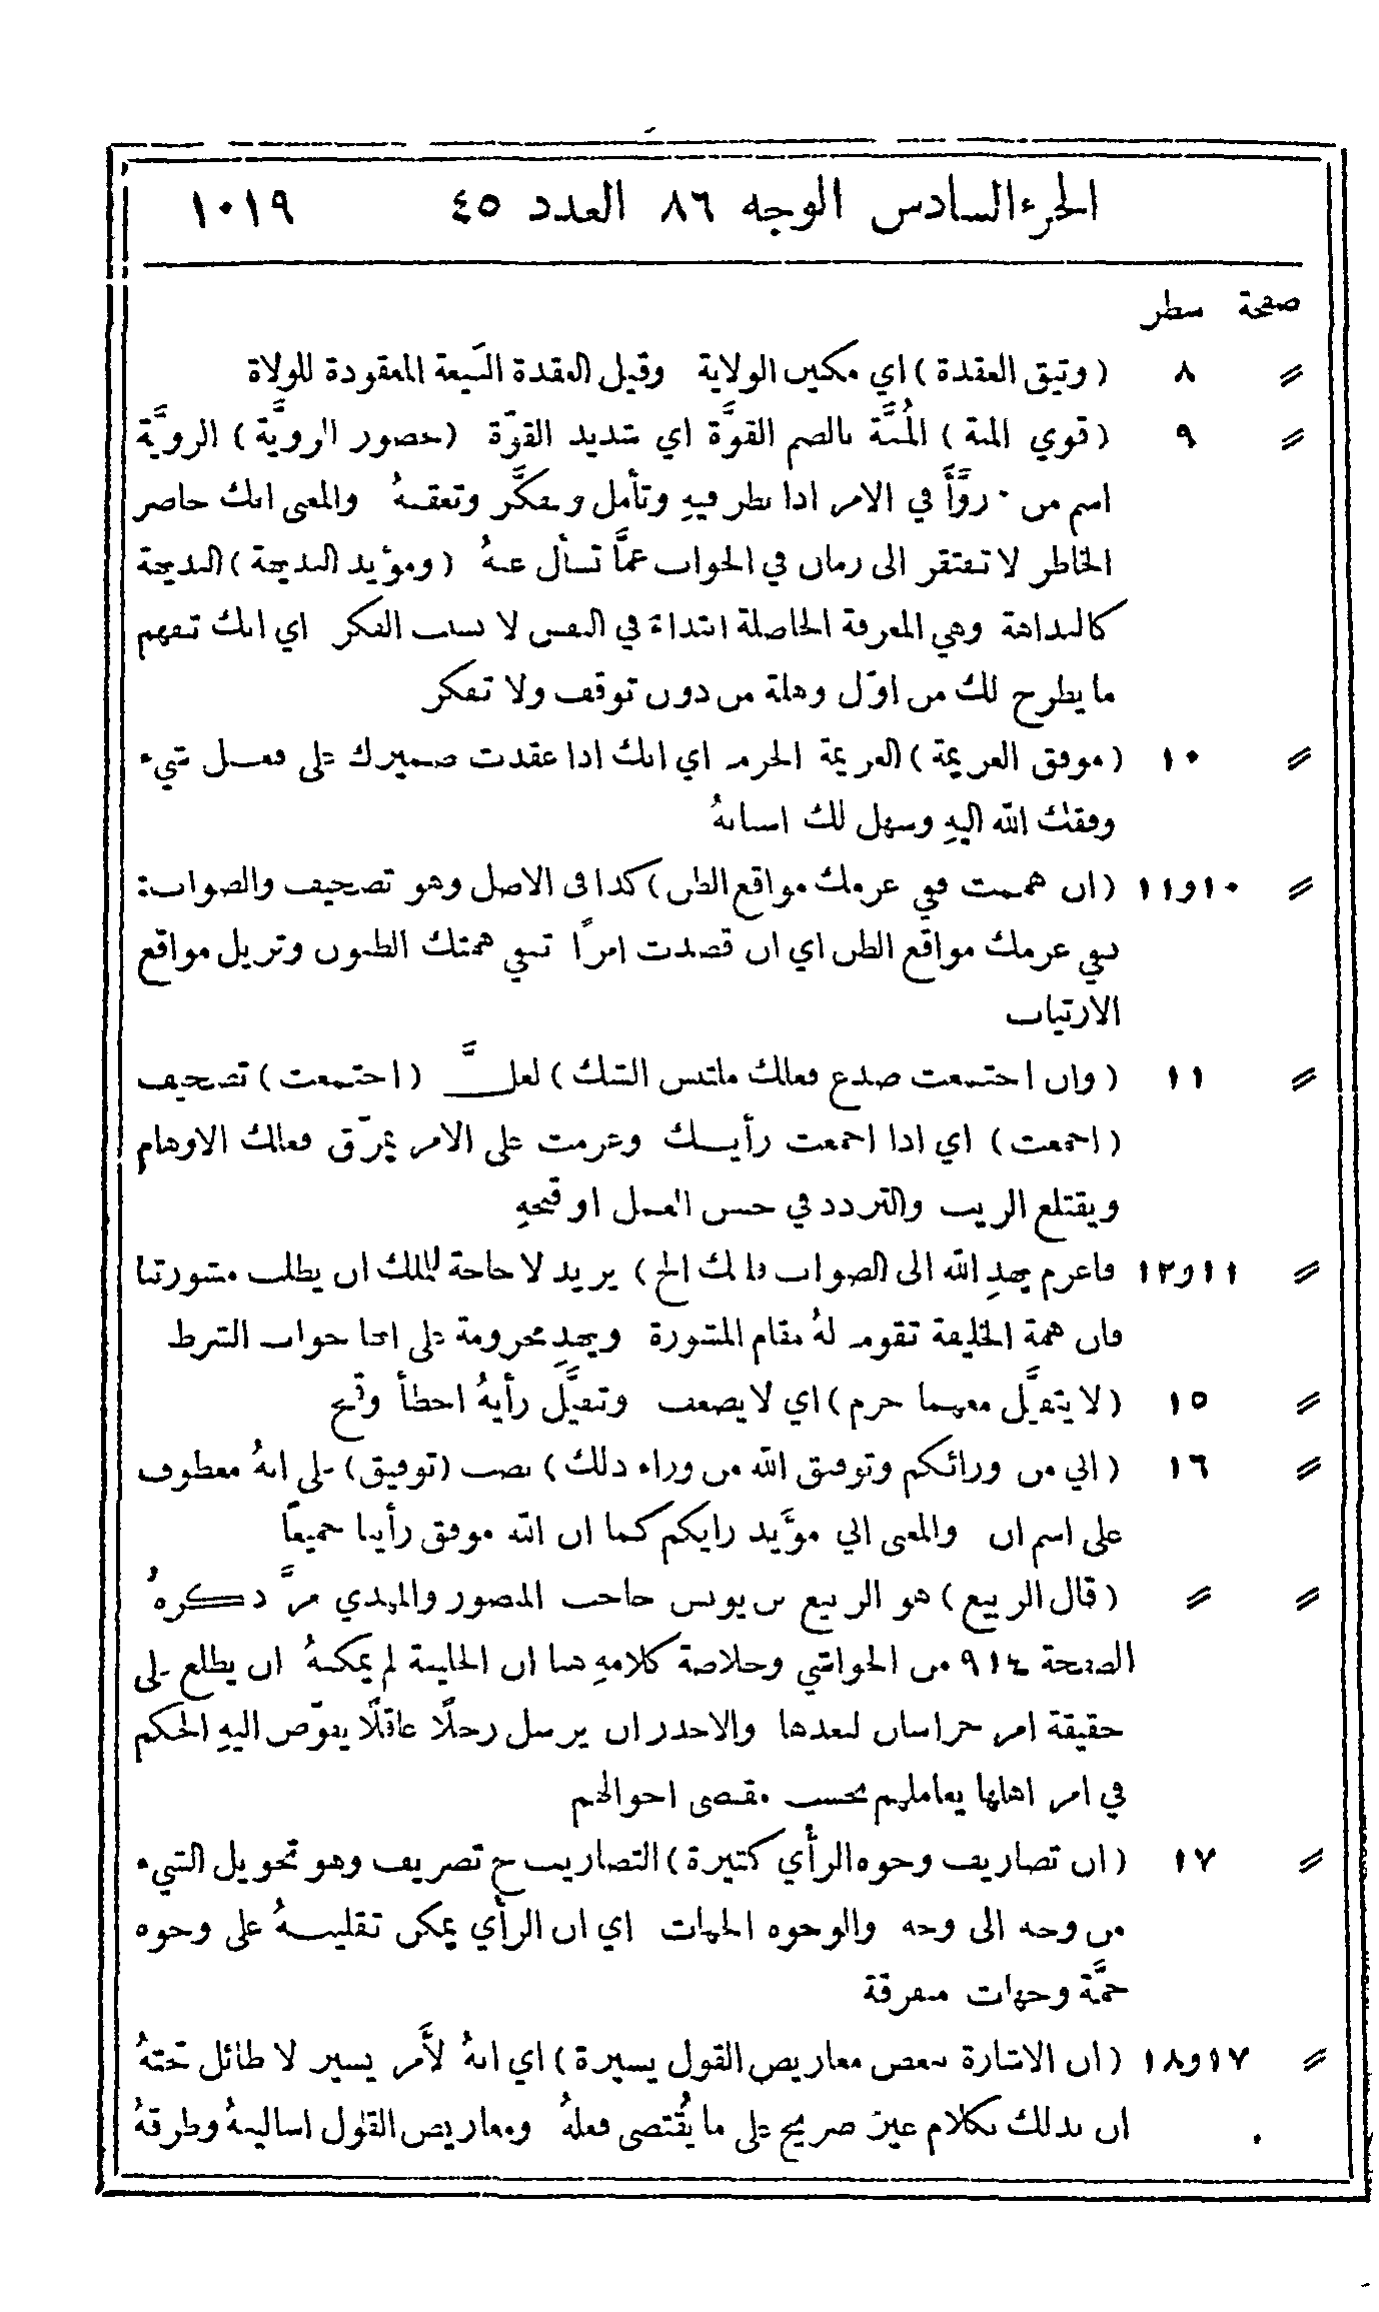 الجزء السادس الوجه ٨٦ العدد ٤٥ ١٠١٩
صفحة سطر
〃 ٨ (وثيق العقدة) اي مكين الولاية وقيل العقدة البيعة المعقودة للولاة
〃 ٩ (قوي المنة) المُنَّة بالضم القوَّة اي شديد القوّة (حضور الرويَّة) الرويَّة
اسم من روَّأَ في الامر اذا نظر فيهِ وتأمل وتفكَّر وتعقبهُ والمعنى انك حاضر
الخاطر لا تفتقر الى زمان في الجواب عمَّا تسأل عنهُ (ومؤيد البديهة) البديهة
كالبداهة وهي المعرفة الحاصلة ابتداءً في النفس لا بسبب الفكر اي انك تفهم
ما يطرح لك من اوّل وهلة من دون توقف ولا تفكر
〃 ١٠ (موفق العزيمة) العزيمة الحزم اي انك اذا عقدت ضميرك على فعل شيء
وفقك الله اليهِ وسهل لك اسبابهُ
〃 ١٠و١١ (ان هممت ففي عزمك مواقع الظن) كذا في الاصل وهو تصحيف والصواب:
نفي عزمك مواقع الظن اي ان قصدت امرًا تنفي همتك الظنون وتزيل مواقع
الارتياب
〃 ١١ (وان اجتمعت صدع فعالك ملتبس الشك) لعلَّ (اجتمعت) تصحيف
(اجمعت) اي اذا اجمعت رأيك وعزمت على الامر يمزّق فعالك الاوهام
ويقتلع الريب والتردد في حسن العمل او قبحهِ
〃 ١١و١٢ فاعزم يهدِ الله الى الصواب قلبك الخ) يريد لا حاجة للملك ان يطلب مشورتنا
فان همة الخليفة تقوم لهُ مقام المشورة ويهدِ مجزومة على انها جواب الشرط
〃 ١٥ (لا يتفيَّل معهما حزم) اي لا يضعف وتفيَّل رأيهُ اخطأ وقبح
〃 ١٦ (اني من ورائكم وتوفيق الله من وراء ذلك) نصب (توفيق) على انهُ معطوف
على اسم ان والمعنى اني مؤَيد رايكم كما ان الله موفق رأينا جميعًا
〃 〃 (قال الربيع) هو الربيع بن يونس حاجب المنصور والمهدي مرَّ ذكرهُ
الصفحة ٩١٤ من الحواشي وخلاصة كلامهِ هنا ان الخليفة لم يمكنهُ ان يطلع على
حقيقة امر خراسان لبعدها والاجدر ان يرسل رجلًا عاقلًا يفوّض اليهِ الحكم
في امر اهلها يعاملهم بحسب مقتضى احوالهم
〃 ١٧ (ان تصاريف وجوه الرأي كثيرة) التصاريف ج تصريف وهو تحويل الشيء
من وجه الى وجه والوجوه الجهات اي ان الرأي يمكن تقليبهُ على وجوه
جمَّة وجهات متفرقة
〃 ١٧و١٨ (ان الاشارة ببعض معاريض القول يسيرة) اي انهُ لأَمر يسير لا طائل تحتهُ
ان ندلك بكلام غير صريح على ما يُقتضى فعلهُ ومعاريض القول اساليبهُ وطرقهُ